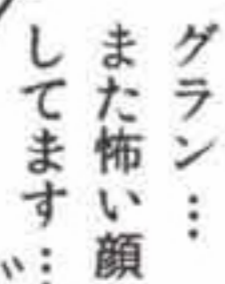 グラン…
また怖い顔
してます…